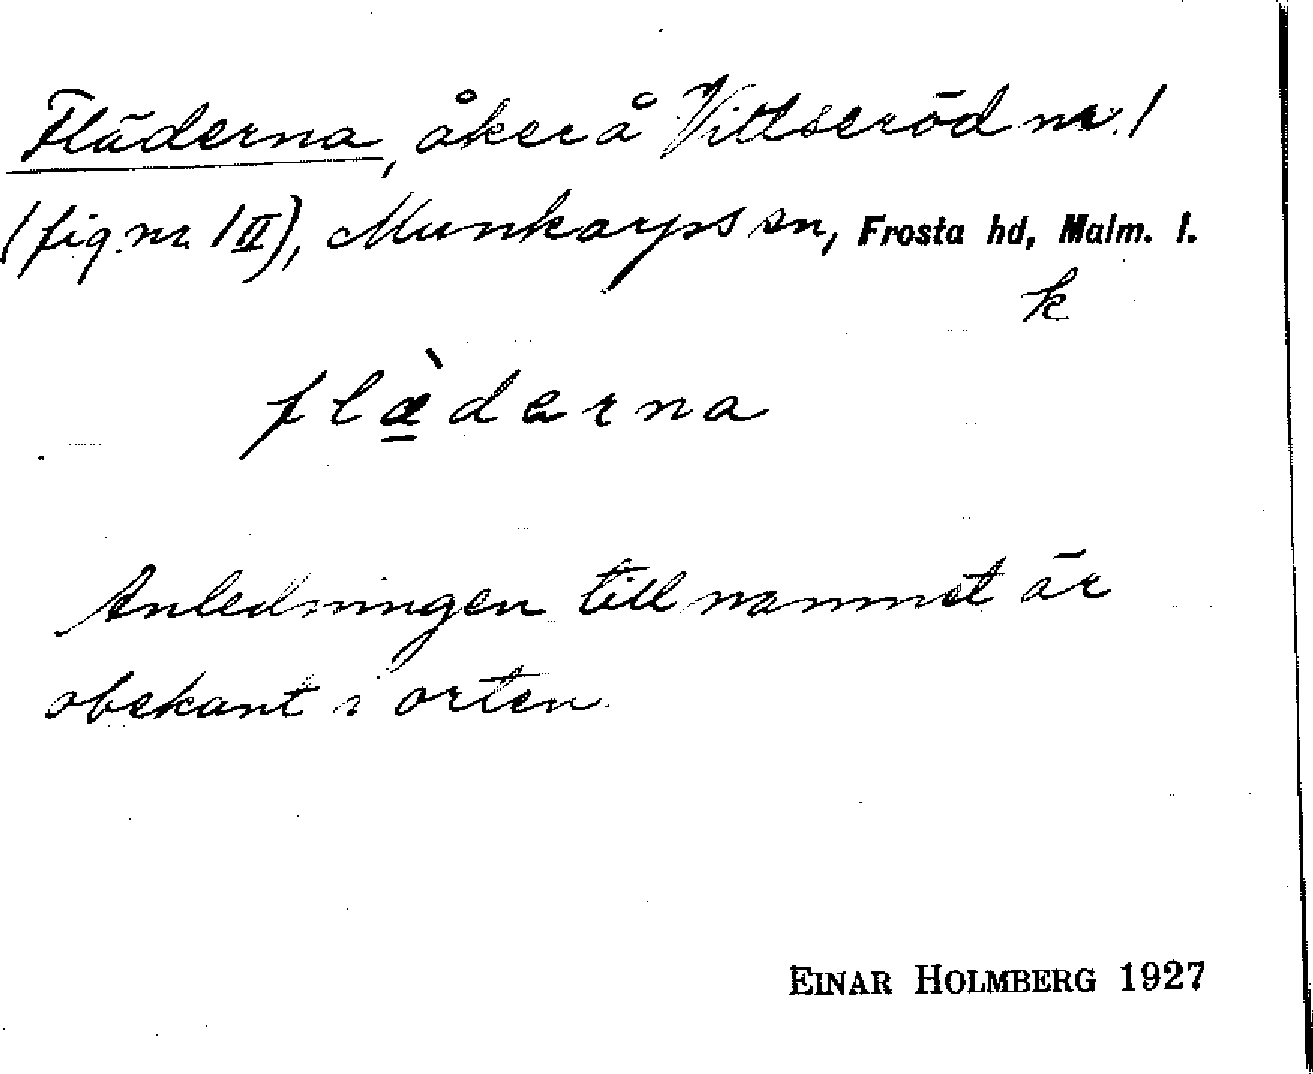 Fläderna, åker å Vittseröd nr 1
(fig. nr. 1 II), Munkarps sn, Frosta hd, Malm. l.
k
flæ̀derna
Anledningen till namnet är
obekant i orten.
EINAR HOLMBERG 1927